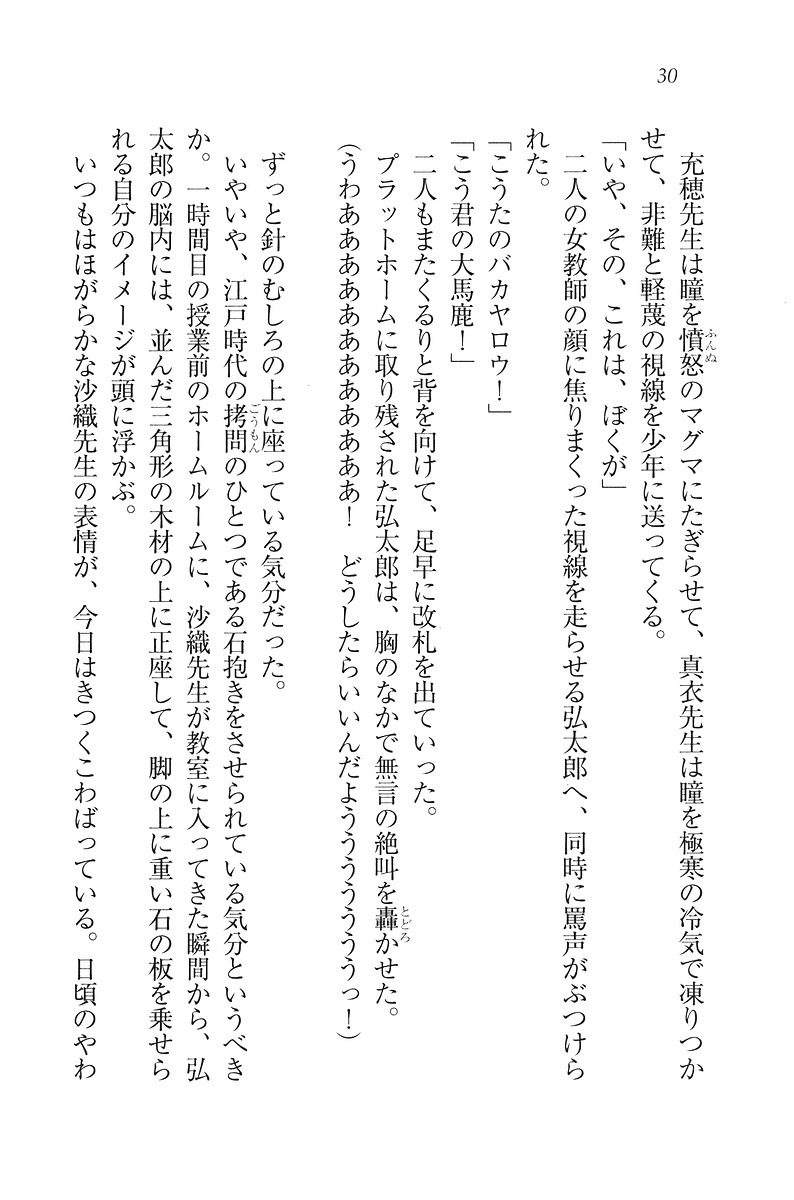 30
充穂先生は瞳を憤怒のマグマにたぎらせて、真衣先生は瞳を極寒の冷気で凍りつか
ふんぬ
せて、非難と軽蔑の視線を少年に送ってくる。
「いや、その、これは、ぼくが」
二人の女教師の顔に焦りまくった視線を走らせる弘太郎へ、同時に罵声がぶつけら
れた。
「こうたのバカヤロウ！」
「こう君の大馬鹿！」
二人もまたくるりと背を向けて、足早に改札を出ていった。
プラットホームに取り残された弘太郎は、胸のなかで無言の絶叫を轟かせた。
とどろ
（うわあああああああああああああ！　どうしたらいいんだよううううううっ！）
ずっと針のむしろの上に座っている気分だった。
いやいや、江戸時代の拷問のひとつである石抱きをさせられている気分というべき
ごうもん
か。一時間目の授業前のホームルームに、沙織先生が教室に入ってきた瞬間から、弘
太郎の脳内には、並んだ三角形の木材の上に正座して、脚の上に重い石の板を乗せら
れる自分のイメージが頭に浮かぶ。
いつもはほがらかな沙織先生の表情が、今日はきつくこわばっている。日頃のやわ